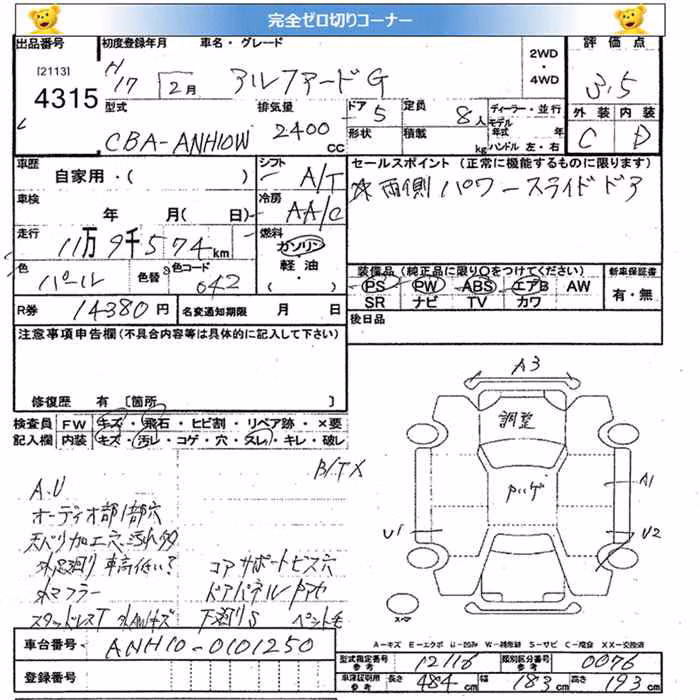 完全ゼロ切りコーナー
出品番号 初度登録年月 車名・グレード 2WD・4WD 評価点
[2113]
4315
H17 2月 アルファードG 3.5
型式 排気量 ドア 5 定員 8人 ディーラー・並行 外装 内装
CBA-ANH10W 2400cc 形状 積載 kg モデル年式 年 ハンドル 左・右 C D
車歴 自家用・( ) シフト A/T セールスポイント (正常に機能するものに限ります)
☆両側パワースライドドア
車検 年 月(日) 冷房 AA/C
走行 11万9千574km 燃料 ガソリン
軽油
・( )
色 パール 色替 色コード 042
装備品 (純正品に限り○をつけてください) 新車保証書
PS PW ABS エアB AW 有・無
SR ナビ TV カワ
R券 14380円 名変通知期限 月 日 後日品
注意事項申告欄 (不具合内容等は具体的に記入して下さい)
修復歴 有 [箇所 ]
検査員 FW キズ・飛石・ヒビ割・リペア跡・×要
記入欄 内装 キズ・汚レ・コゲ・穴・スレ・キレ・破レ
B/TX
A.U
オーディオ部1部穴
天バリ加工穴汚れ多
外足廻り車高低い? コアサポートビス穴
外マフラー
スタッドレスT 外AWキズ 下廻りS
A3
調整
A1
U1
U2
スペア
A-キズ E-エクボ U-凹凸 W-補修跡 S-サビ C-腐食 XX-交換済
車台番号 ANH10-0101250
登録番号
型式指定番号 参考 12116 類別区分番号 参考 0076
車庫証明用 参考 長さ 484cm 幅 183cm 高さ 193cm